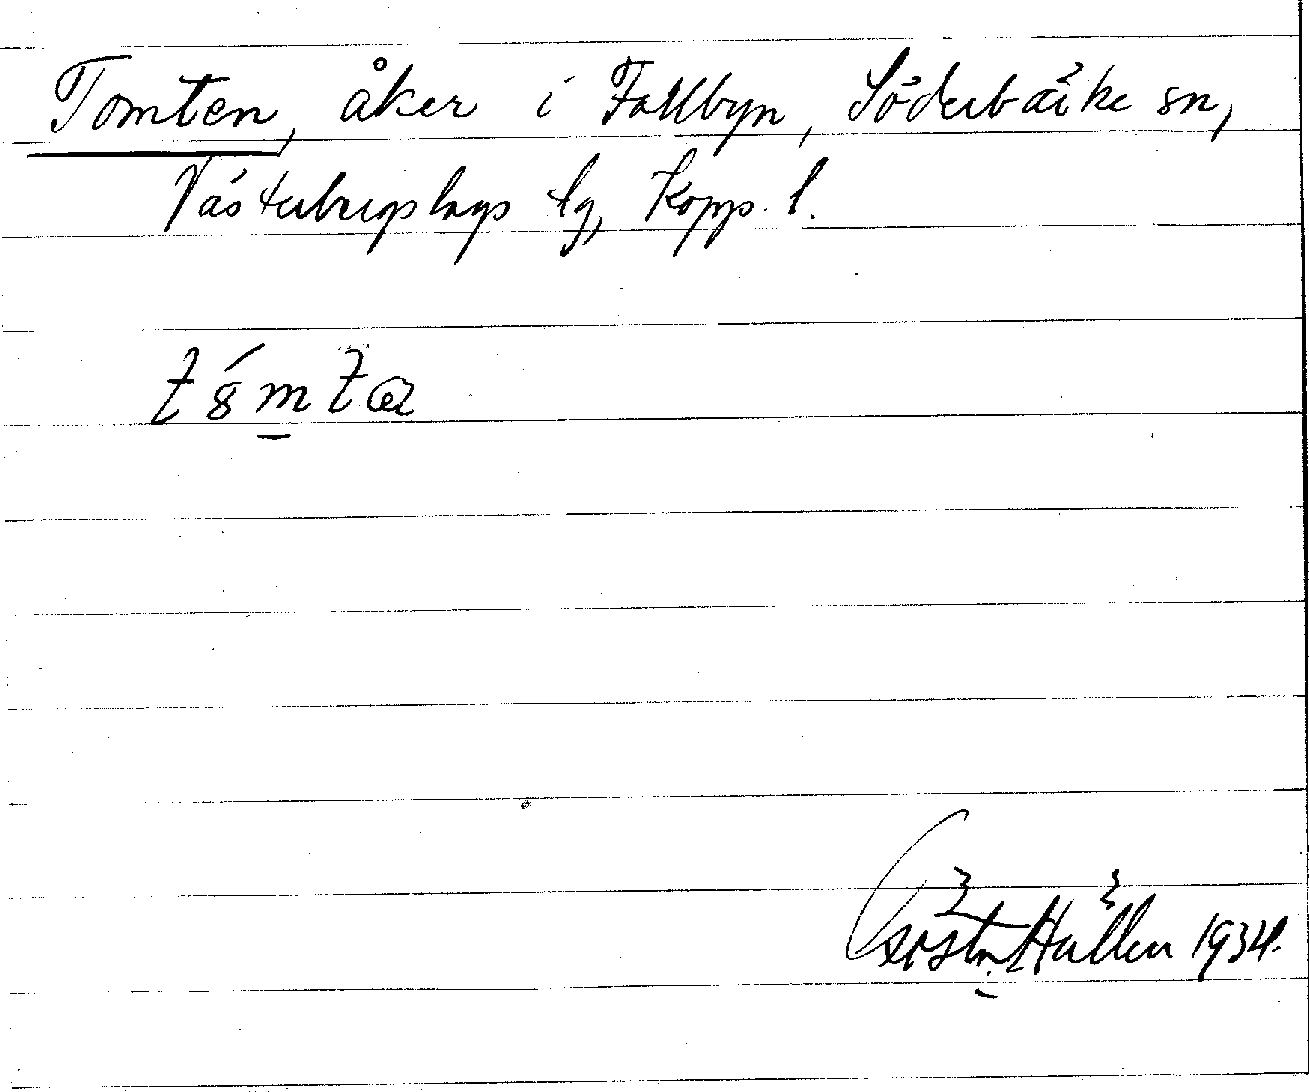 Tomten, åker i Fallbyn, Söderbärke sn,
Västerbergslags tg, Kopps. l.
Gösta Hallén 1934.